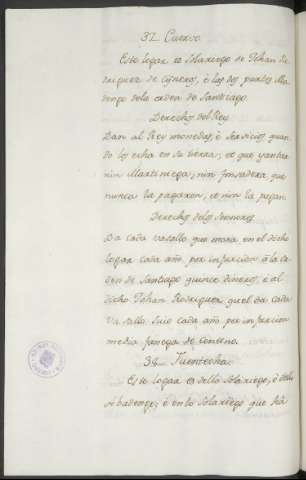 37. Cuerno.
Este logar es Solariego de Johan Ro
driguez de Cisneros, è los dos partes Aba
dengo dela orden de Santiago.
Derechos del Rey
Dan al Rey monedas, è servicios quan
do los echa en su tierra, et que yantar
nin Martiniega, nin fonsadera que
nunca la pagaron, et nin la pagan.
Derechos delos Sennores
Da cada vasallo que mora en el dicho
logar cada año por infurcion à la or
den de Santiago quince dineros, è al
dicho Johan Rodriguez quel da cada
vasallo suio cada año por infurcion
media fanega de Centeno.
38. Fuentecha.
Este logar es dello Solariego, è dello
Abadengo; è en lo Solariego que há